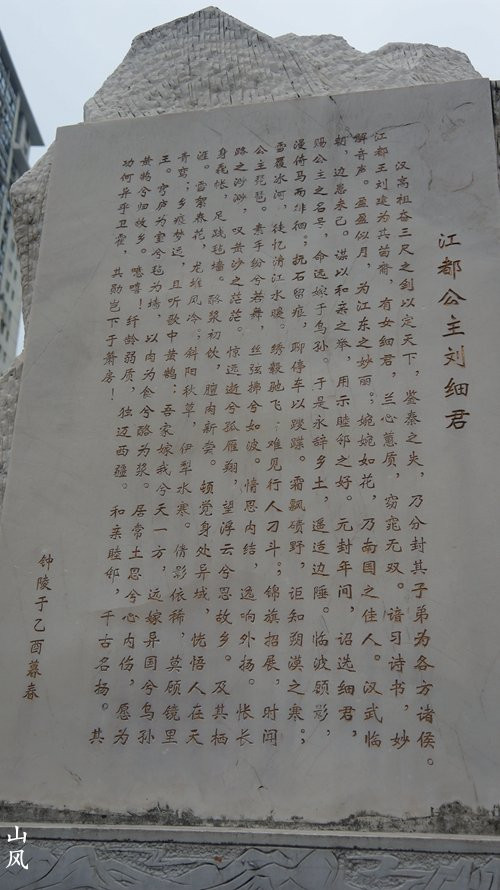 江都公主刘细君
汉高祖奋三尺之剑以定天下，鉴秦之失，乃分封其子弟为各方诸侯。
江都王刘建为其苗裔，有女细君，兰心蕙质，窈窕无双。谙习诗书，妙
解音声。盈盈似月，为江东之妙丽；婉婉如花，乃南国之佳人。汉武临
朝，边患未已。谋以和亲之举，用示睦邻之好。元封年间，诏选细君，
赐公主之名号，命远嫁于乌孙。于是永辞乡土，遥适边陲。临波顾影，
漫倚马而徘徊；抚石留痕，聊停车以踥蹀。霜飘碛野，讵知朔漠之寒；
雪覆冰河，徒忆清江水暖。绣毂驰飞，难见行人刁斗；锦旗招展，时闻
公主琵琶。素手纷兮若舞，丝弦拂兮如波。情思内结，逸响外扬。怅长
路之渺渺，叹黄沙之茫茫。惊远逝兮孤雁翔，望浮云兮思故乡。及其栖
身毳帐，足践毡墙。酪浆初饮，膻肉新尝。顿觉身处异域，恍悟人在天
涯。雪絮春花，龙堆风冷；斜阳秋草，伊犁水寒。倩影依稀，莫顾镜里
青鸾；乡痕梦远，且听歌中黄鹄：吾家嫁我兮天一方，远嫁异国兮乌孙
王。穹庐为室兮毡为墙，以肉为食兮酪为浆。居常土思兮心内伤，愿为
黄鹄兮归故乡。噫嘻！纤龄弱质，独迈西疆。和亲睦邻，千古名扬。其
功何异乎卫霍，其勋岂下于萧房！
钟陵于乙酉暮春
山风